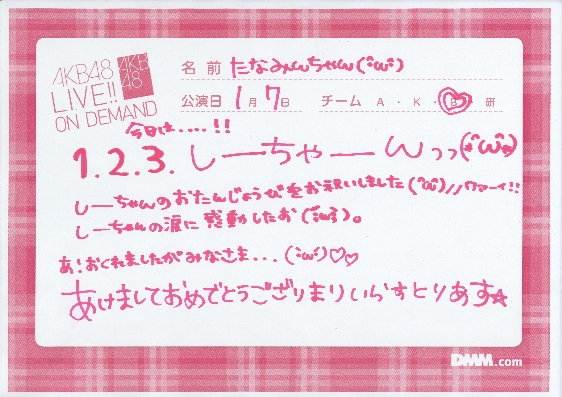 AKB48
LIVE!!
ON DEMAND
AKB
48
名前 たなみんちゃん(^ω^)
公演日 1月7日 チーム A・K・B・研
今日は....!!
1.2.3. しーちゃーんっっ(*^ω^*)
しーちゃんのおたんじょうびをお祝いしました(^ω^)//ワァーイ!!
しーちゃんの涙に感動したお(´;ω;`)。
あ!おくれましたがみなさま...(・ω・)♡♡
あけましておめでとうござりまりいらすとりあす☆
DMM.com